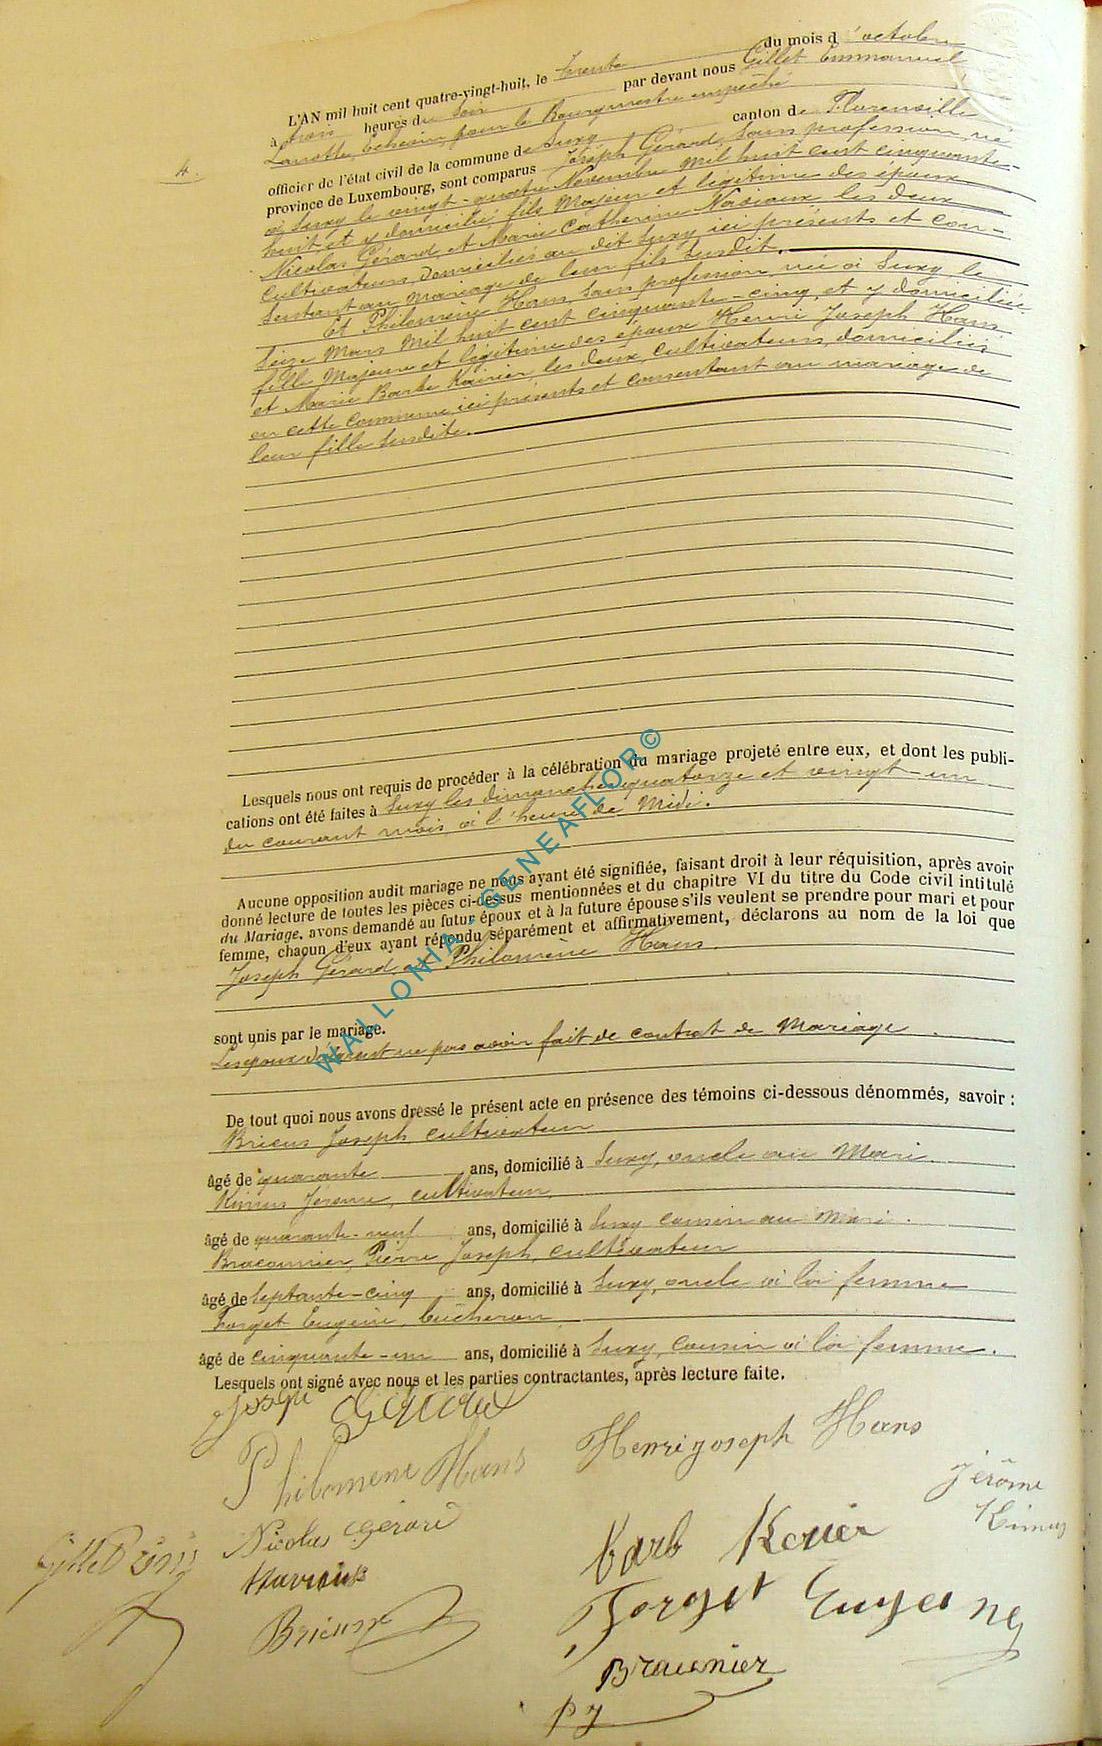 4.
L'AN mil huit cent quatre-vingt-huit, le trente du mois d'octobre
à trois heures du soir par devant nous Gillet Emmanuel
Lamotte, Echevin, pour le Bourgmestre empêché
officier de l'état civil de la commune de Suxy canton de Florenville
province de Luxembourg, sont comparus Joseph Gérard, sans profession, né
à Suxy le vingt-quatre Novembre mil huit cent cinquante-
huit, et y domicilié, fils Majeur et légitime des époux
Nicolas Gérard, et Marie Catherine Naviaux, les deux
cultivateurs, domiciliés au dit Suxy, ici présents et con-
sentant au mariage de leur fils susdit.
Et Philomène Hans, sans profession, née à Suxy le
seize Mars Mil huit cent cinquante-cinq, et y domiciliée
fille Majeure et légitime des époux Henri Joseph Hans
et Marie Barbe, les deux cultivateurs, domiciliés
en cette commune, ici présents et consentant au mariage de
leur fille susdite.
Lesquels nous ont requis de procéder à la célébration du mariage projeté entre eux, et dont les publi-
cations ont été faites à Suxy les dimanches quatorze et vingt-un
du courant mois, à l'heure de Midi.
Aucune opposition audit mariage ne nous ayant été signifiée, faisant droit à leur réquisition, après avoir
donné lecture de toutes les pièces ci-dessus mentionnées et du chapitre VI du titre du Code civil intitulé
du Mariage, avons demandé au futur époux et à la future épouse s'ils veulent se prendre pour mari et pour
femme, chacun d'eux ayant répondu séparément et affirmativement, déclarons au nom de la loi que
Joseph Gérard, et Philomène Hans
sont unis par le mariage.
Les époux déclarent ne pas avoir fait de contrat de Mariage.
De tout quoi nous avons dressé le présent acte en présence des témoins ci-dessous dénommés, savoir :
Brieus Joseph cultivateur
âgé de quarante ans, domicilié à Suxy, oncle au Mari
Kimus Jérome, cultivateur
âgé de quarante-neuf ans, domicilié à Suxy cousin au Mari.
Braconnier, Pierre Joseph, cultivateur
âgé de septante-cinq ans, domicilié à Suxy, oncle à la femme
Forget Eugène, bûcheron
âgé de cinquante-un ans, domicilié à Suxy, cousin à la femme.
Lesquels ont signé avec nous et les parties contractantes, après lecture faite.
Joseph Gérard
Philomene Hans
Henri joseph Hans
Jérôme
Kimus
Nicolas Gérard
Barb Kerier
Naviaux
Forget Eugene
Brieus
Braconnier
p j
WALLONIA GENEAFLOR©